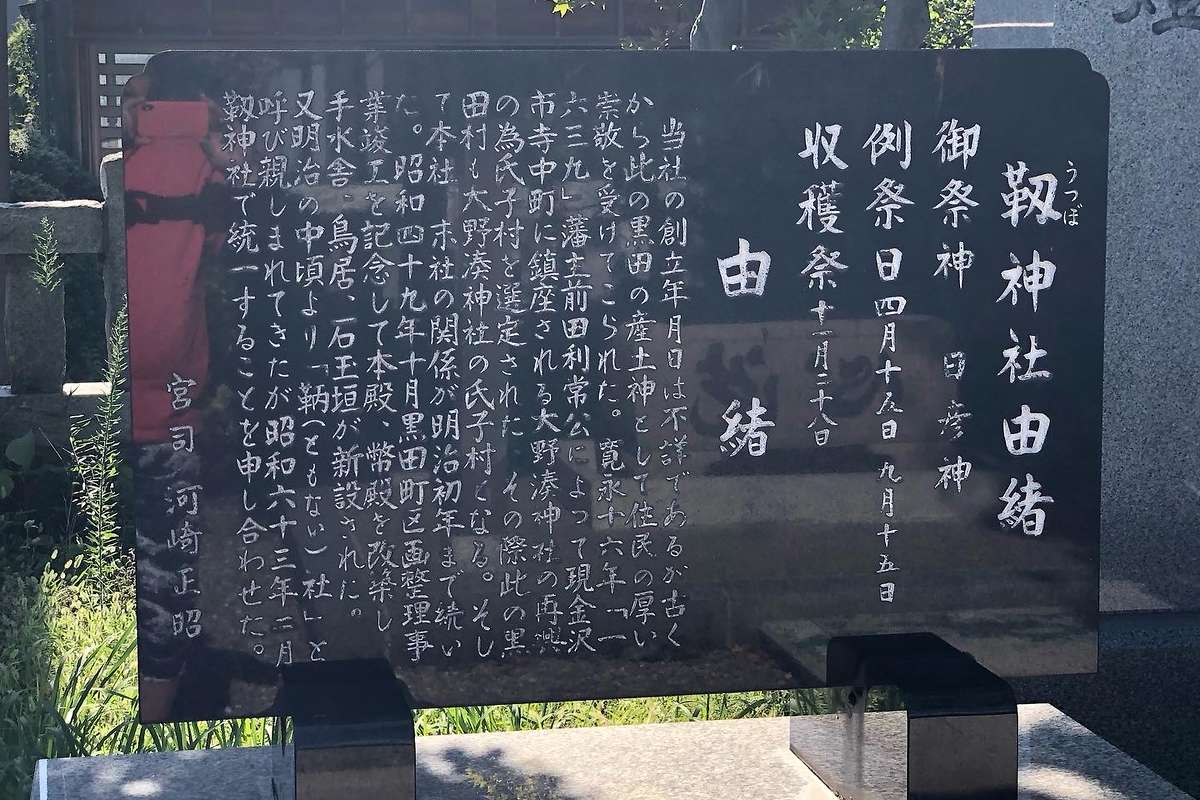 うつぼ
靱神社由緒
御祭神 日彦神
例祭日四月十五日 九月十五日
収穫祭十一月二十八日
由緒
当社の創立年月日は不詳であるが古く
から此の黒田の産土神として住民の厚い
崇敬を受けてこられた。寛永十六年「一
六三九」藩主前田利常公によって現金沢
市寺中町に鎮座される大野湊神社の再興
の為氏子村を選定された その際此の黒
田村も大野湊神社の氏子村となる。そし
て本社 末社の関係が明治初年まで続い
た。昭和四十九年十月黒田町区画整理事
業竣工を記念して本殿、幣殿を改築し
手水舎、鳥居、石玉垣が新設された。
又明治の中頃より「鞆(ともない)社」と
呼び親しまれてきたが昭和六十三年二月
靱神社で統一することを申し合わせた。
宮司 河崎正昭